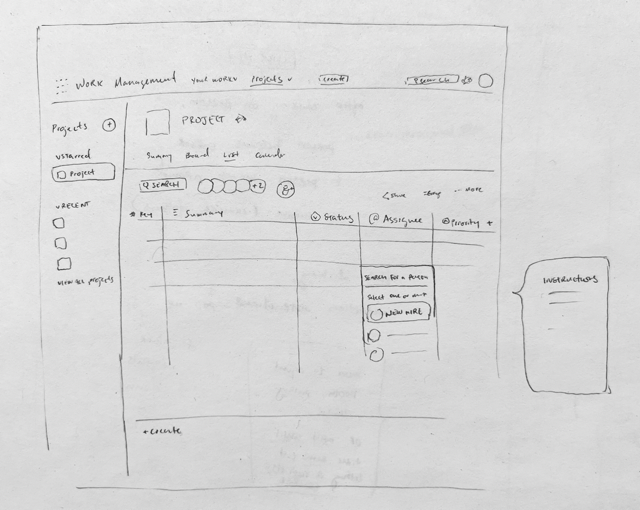 Work Management Your work Projects Create Search
Projects +
Starred
Project
Recent
View all projects
PROJECT
Summary Board List Calendar
SEARCH +2
Share More
Key Summary Status Assignee Priority +
Search for a Person
Select one or more
NEW HIRE
+ Create
INSTRUCTIONS